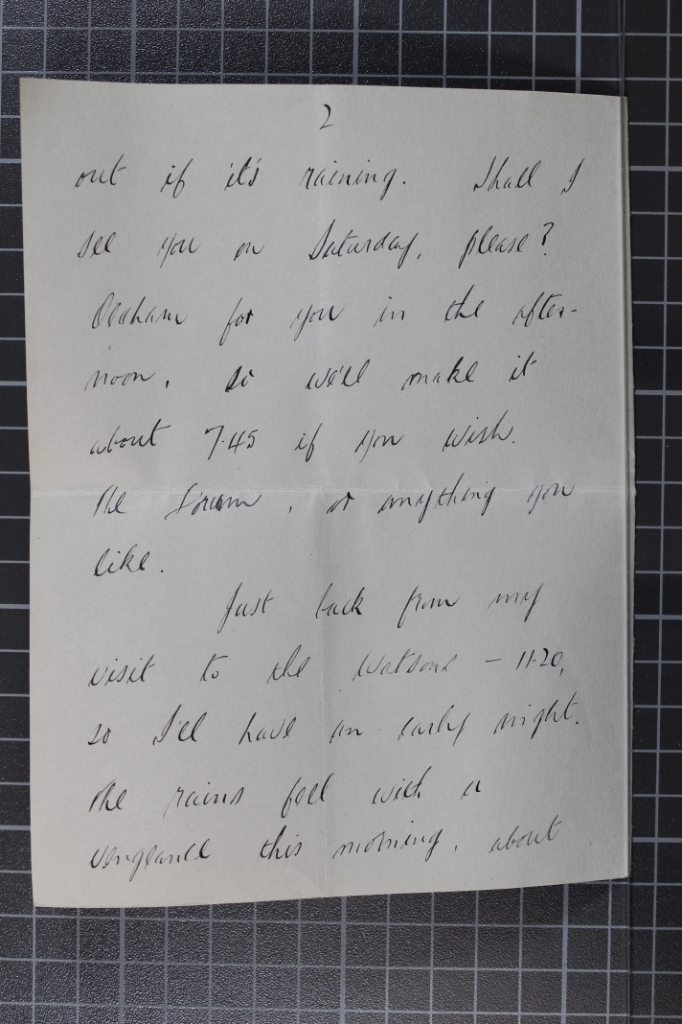 2
out if it's raining. Shall I
see you on Saturday, please?
for you in the after-
noon, so we'll make it
about 7.45 if you wish.
The Forum, or anything you
like.
Just back from my
visit to the Watsons – 11.20,
so I'll have an early night.
The rains fell with a
vengeance this morning, about